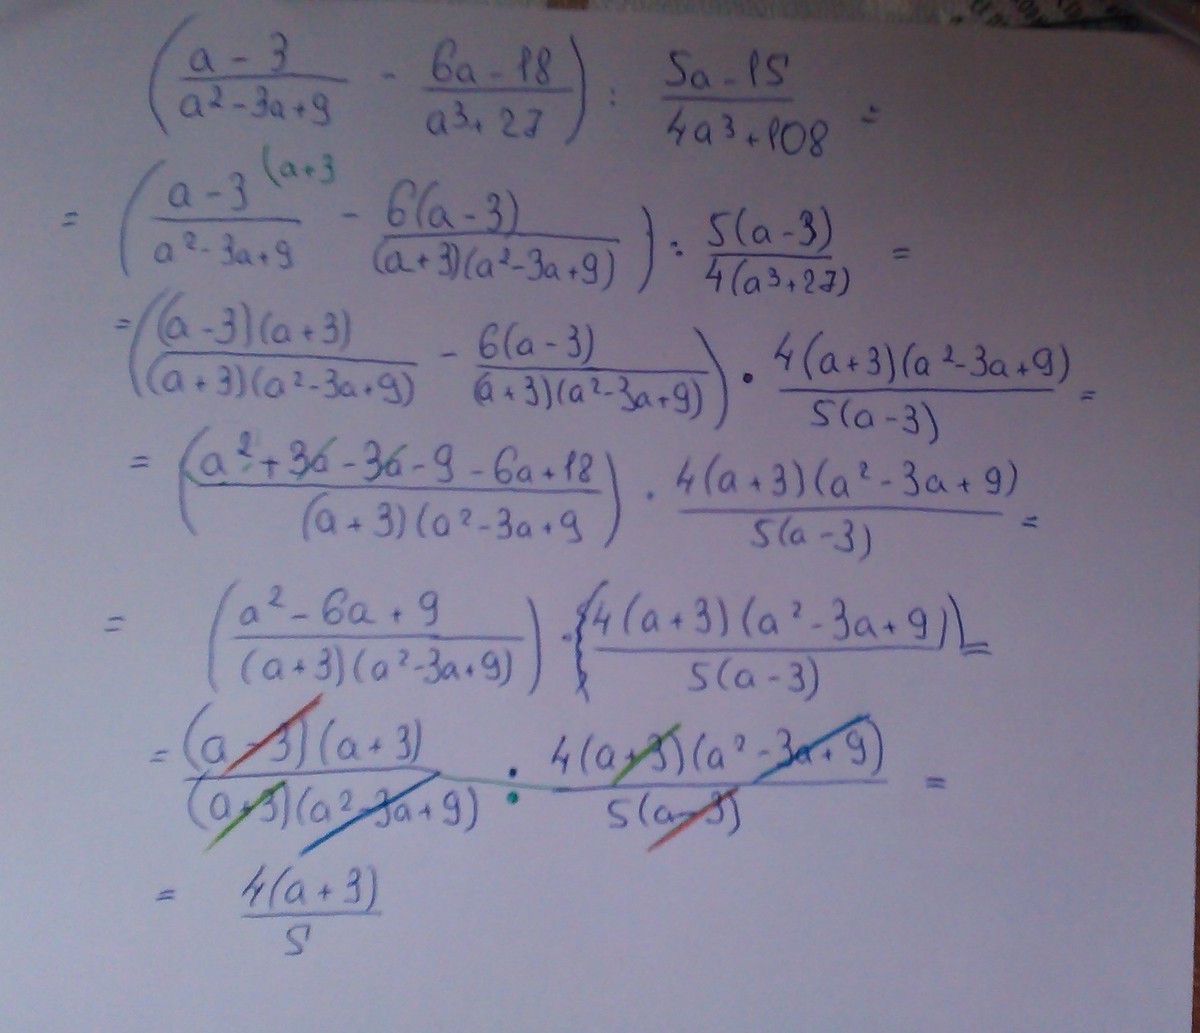 (a - 3 / a² - 3a + 9 - 6a - 18 / a³ + 27) : 5a - 15 / 4a³ + 108 =
= (a - 3 (a + 3 / a² - 3a + 9 - 6(a - 3) / (a + 3)(a² - 3a + 9)) : 5(a - 3) / 4(a³ + 27) =
= ((a - 3)(a + 3) / (a + 3)(a² - 3a + 9) - 6(a - 3) / (a + 3)(a² - 3a + 9)) · 4(a + 3)(a² - 3a + 9) / 5(a - 3) =
= (a² + 3a - 3a - 9 - 6a + 18 / (a + 3)(a² - 3a + 9) · 4(a + 3)(a² - 3a + 9) / 5(a - 3) =
= (a² - 6a + 9 / (a + 3)(a² - 3a + 9)) · {4(a + 3)(a² - 3a + 9) / 5(a - 3) =
= (a - 3)(a + 3) / (a + 3)(a² - 3a + 9) : 4(a + 3)(a² - 3a + 9) / 5(a - 3) =
= 4(a + 3) / 5